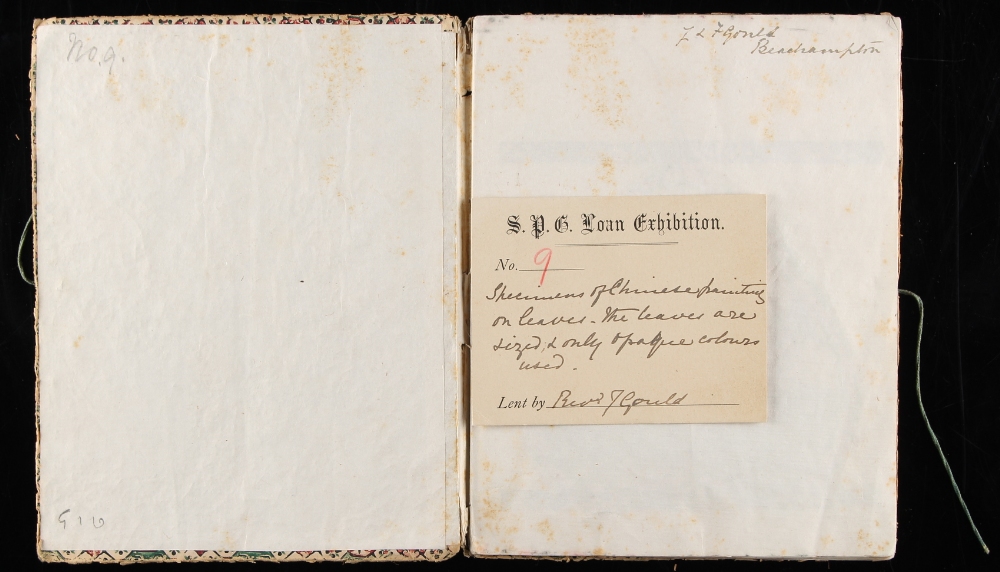 No. 9.
G 10
J & F Gould
Beachampton
S. P. G. Loan Exhibition.
No. 9
Specimens of Chinese painting
on leaves - The leaves are
sized, & only opaque colours
used.
Lent by Revd J Gould